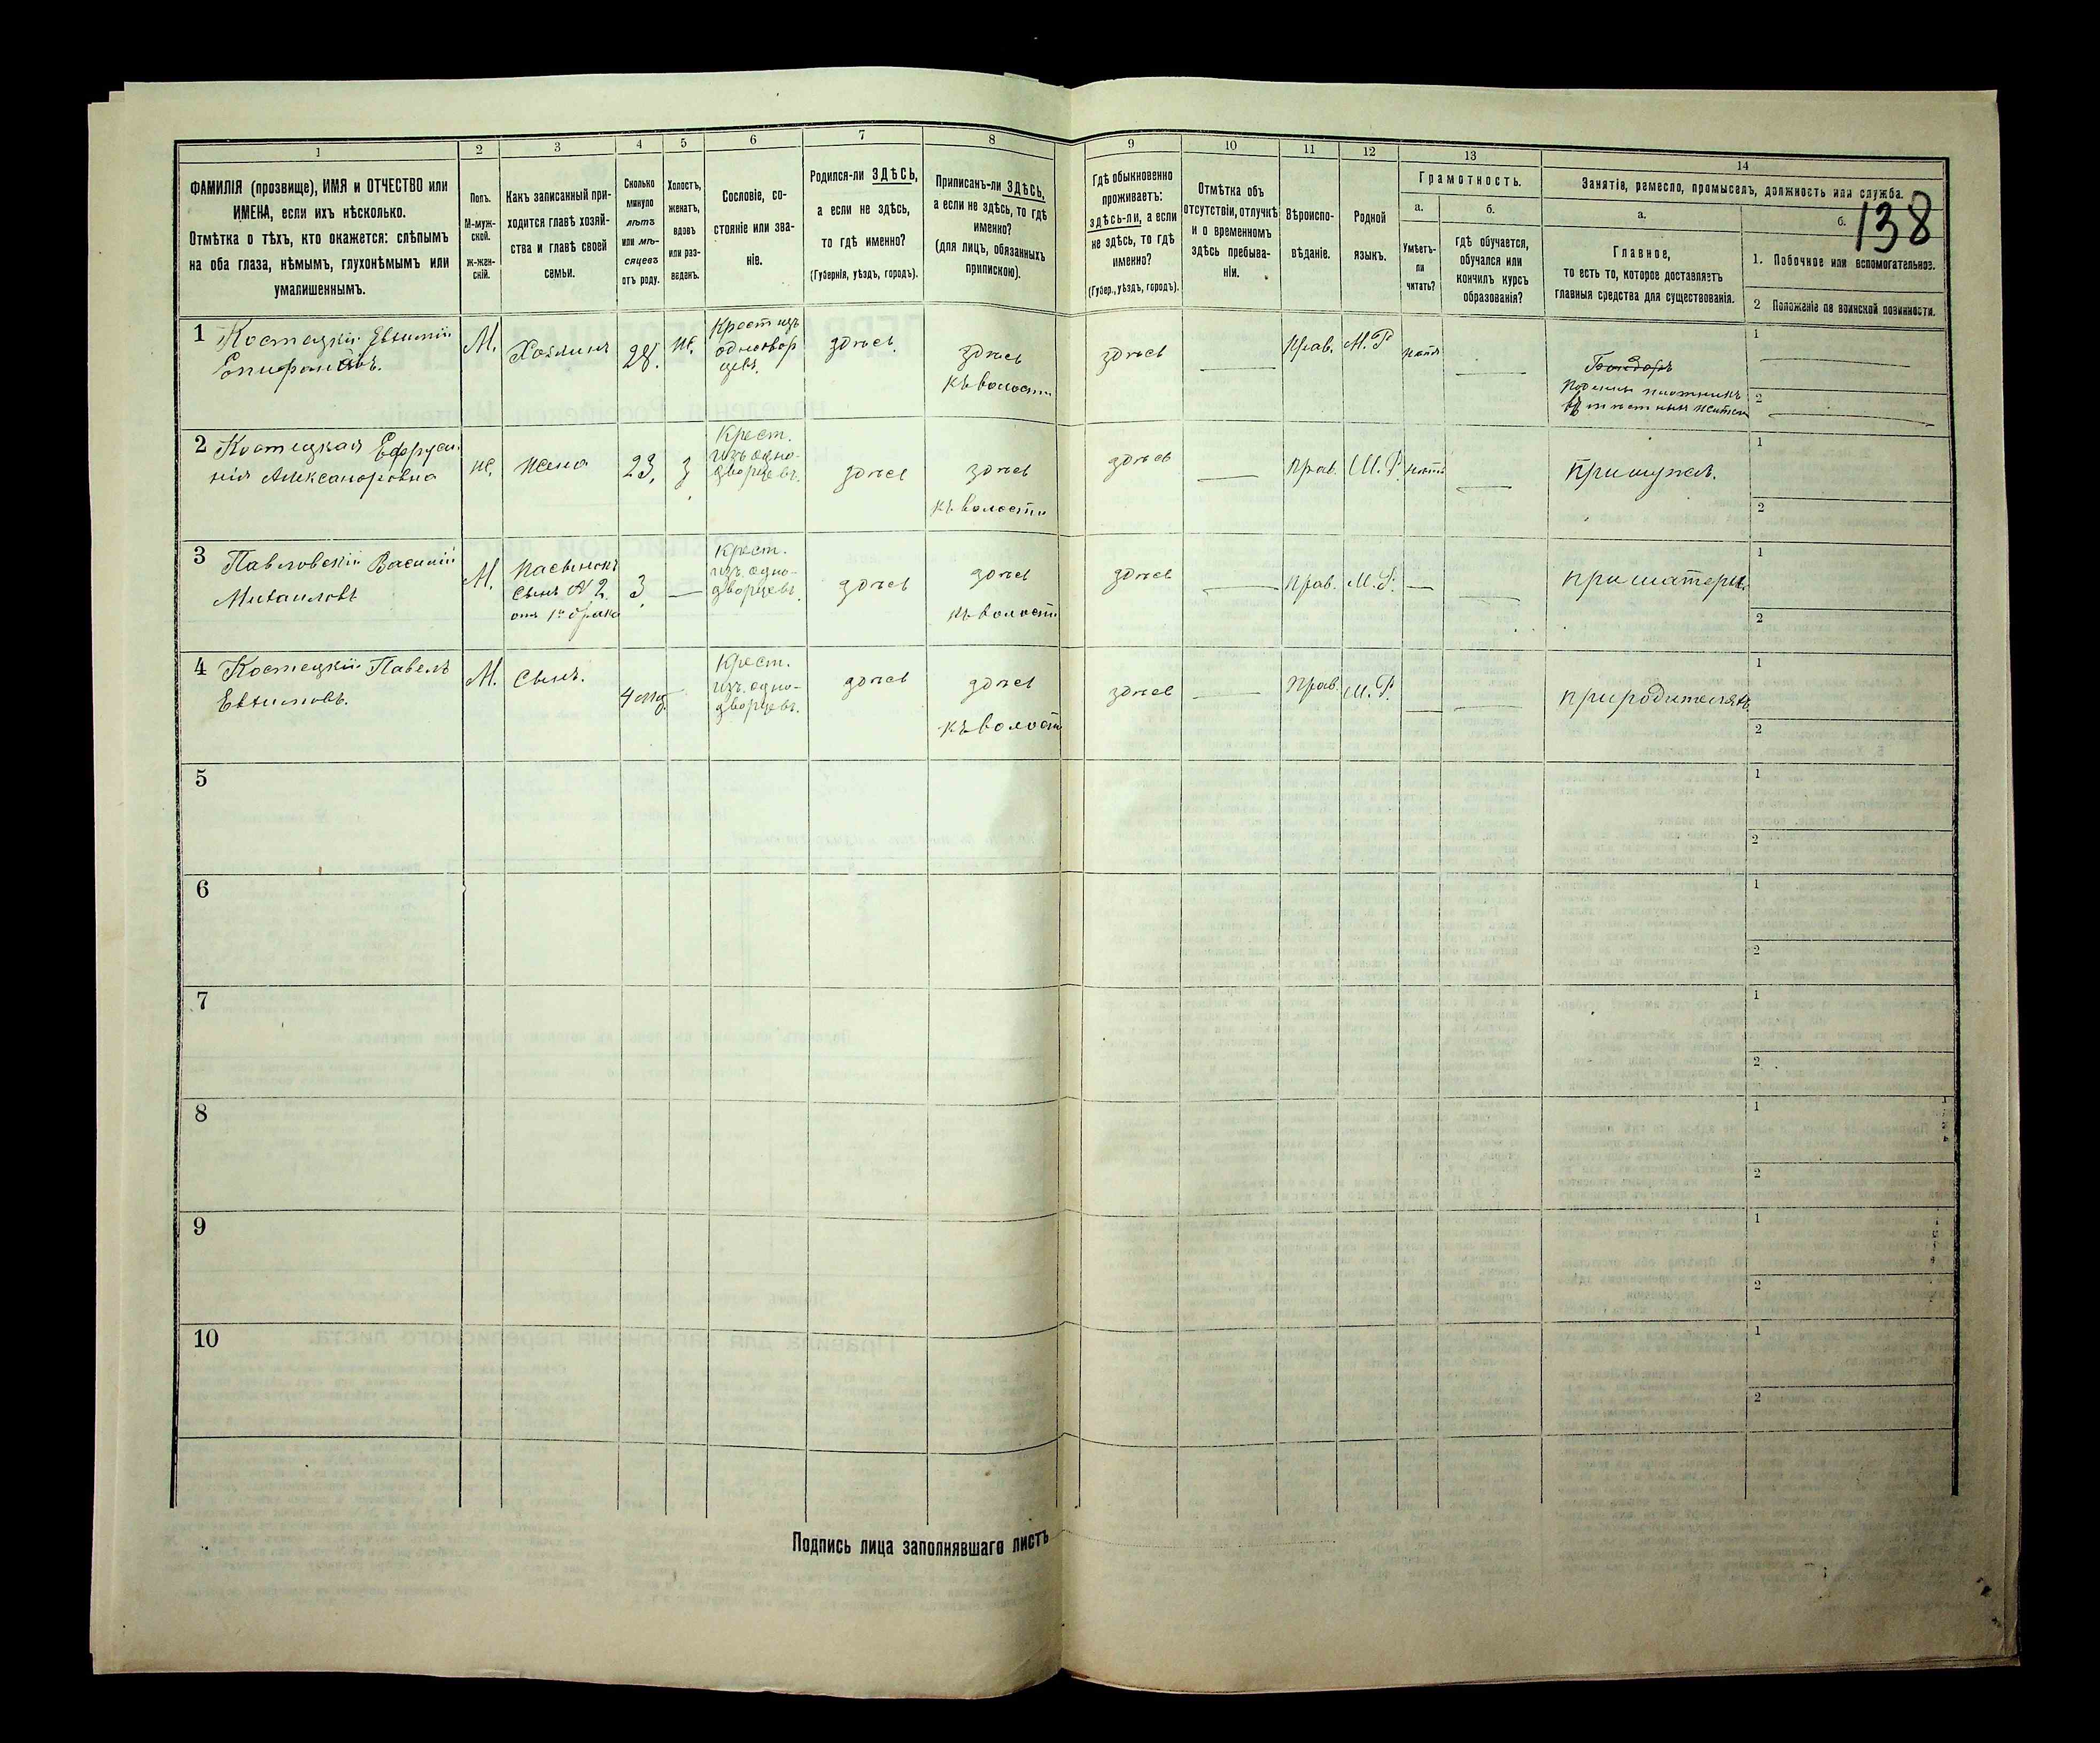 138
1 2 3 4 5 6 7 8 9 10 11 12 13 14
ФАМИЛІЯ (прозвище), ИМЯ и ОТЧЕСТВО или
ИМЕНА, если ихъ нѣсколько.
Отмѣтка о тѣхъ, кто окажется: слѣпымъ
на оба глаза, нѣмымъ, глухонѣмымъ или
умалишеннымъ.
Полъ.
М-муж-
ской.
ж-жен-
скій.
Какъ записанный при-
ходится главѣ хозяй-
ства и главѣ своей
семьи.
Сколько
минуло
лѣтъ
или мѣ-
сяцевъ
отъ роду.
Холостъ,
женатъ,
вдовъ
или раз-
веденъ.
Сословіе, со-
стояніе или зва-
ніе.
Родился-ли ЗДѢСЬ,
а если не здѣсь,
то гдѣ именно?
(Губернія, уѣздъ, городъ).
Приписанъ-ли ЗДѢСЬ,
а если не здѣсь, то гдѣ
именно?
(для лицъ, обязанныхъ
припискою).
Гдѣ обыкновенно
проживаетъ:
здѣсь-ли, а если
не здѣсь, то гдѣ
именно?
(Губер., уѣздъ, городъ).
Отмѣтка объ
отсутствіи, отлучкѣ
и о временномъ
здѣсь пребыва-
ніи.
Вѣроиспо-
вѣданіе.
Родной
языкъ.
Грамотность.
а.
Умѣетъ-
ли
читать?
б.
гдѣ обучается,
обучался или
кончилъ курсъ
образованія?
Занятіе, ремесло, промыселъ, должность или служба.
а.
Главное,
то есть то, которое доставляетъ
главныя средства для существованія.
б.
1. Побочное или вспомогательное.
2 Положеніе по воинской повинности.
1 Костецкій Евѳимій
Епифановъ.
М.
Хозяинъ
28.
ж.
Крест изъ
однодвор
цевъ.
здѣсь
здѣсь
къ волости
здѣсь
Прав.
М. Р
нѣтъ
Бондарь
плотникъ
1
2
2 Костецкая Ефруси-
нія Александровна
ж.
жена
23,
з
Крест.
изъ одно-
дворцевъ.
здѣсь
здѣсь
къ волости
здѣсь
Прав.
М. Р.
нѣтъ
при мужѣ.
1
2
3 Павловскій Василій
Михаиловъ
М.
Пасынокъ
Сынъ № 2
отъ 1го брака
3
Крест.
изъ одно-
дворцевъ.
здѣсь
здѣсь
къ волости
здѣсь
Прав.
М. Р.
при матери.
1
2
4 Костецкій Павелъ
Евѳимовъ.
М.
Сынъ.
4 мѣ.
Крест.
изъ одно-
дворцевъ.
здѣсь
здѣсь
къ волости
здѣсь
Прав.
М. Р.
при родителяхъ
1
2
5
1
2
6
1
2
7
1
2
8
1
2
9
1
2
10
1
2
Подпись лица заполнявшаго листъ